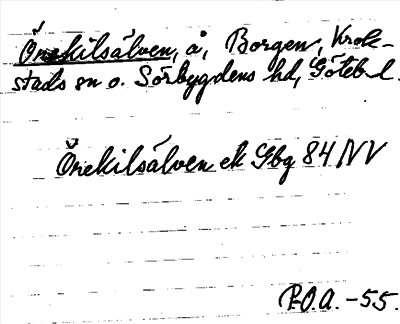 Örekilsälven, å, Borgen, Krok-
stads sn o. Sörbygdens hd, Göteb. l.
Örekilsälven ek Gbg 84 NV
P.O.A. -55.